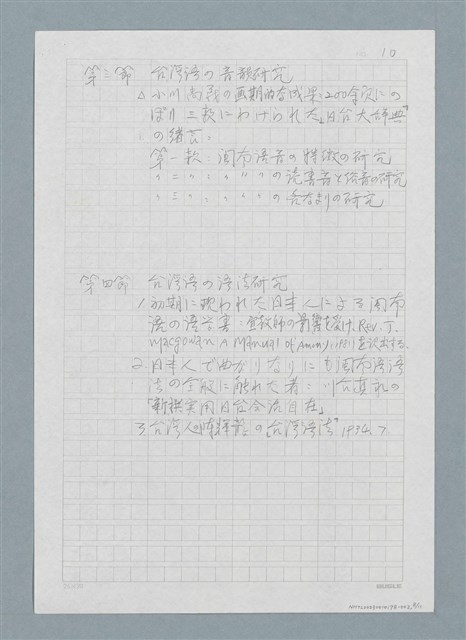 10
第三節 台湾語の音韻研究
△小川尚義の画期的な成果：200余頁にの
ぼり三款にわけられた『日台大辞典』
の緒言：
第一款：閩南語音の特徴の研究
〃二〃：〃〃の読書音と俗音の研究
〃三〃：〃〃の
の研究
第四節 台湾語の語法研究
1.初期に現われた日本人による閩南
語の語学書：宣教師の影響を受け、Rev. J.
Macgowan A Manual of Amoy, 1881を
2.日本人で曲がりなりにも閩南語語
法の全般に触れた者：川合真永の
「新撰実用日台会話自在」
3.台湾人の陳輝龍の『台湾語法』1934、7